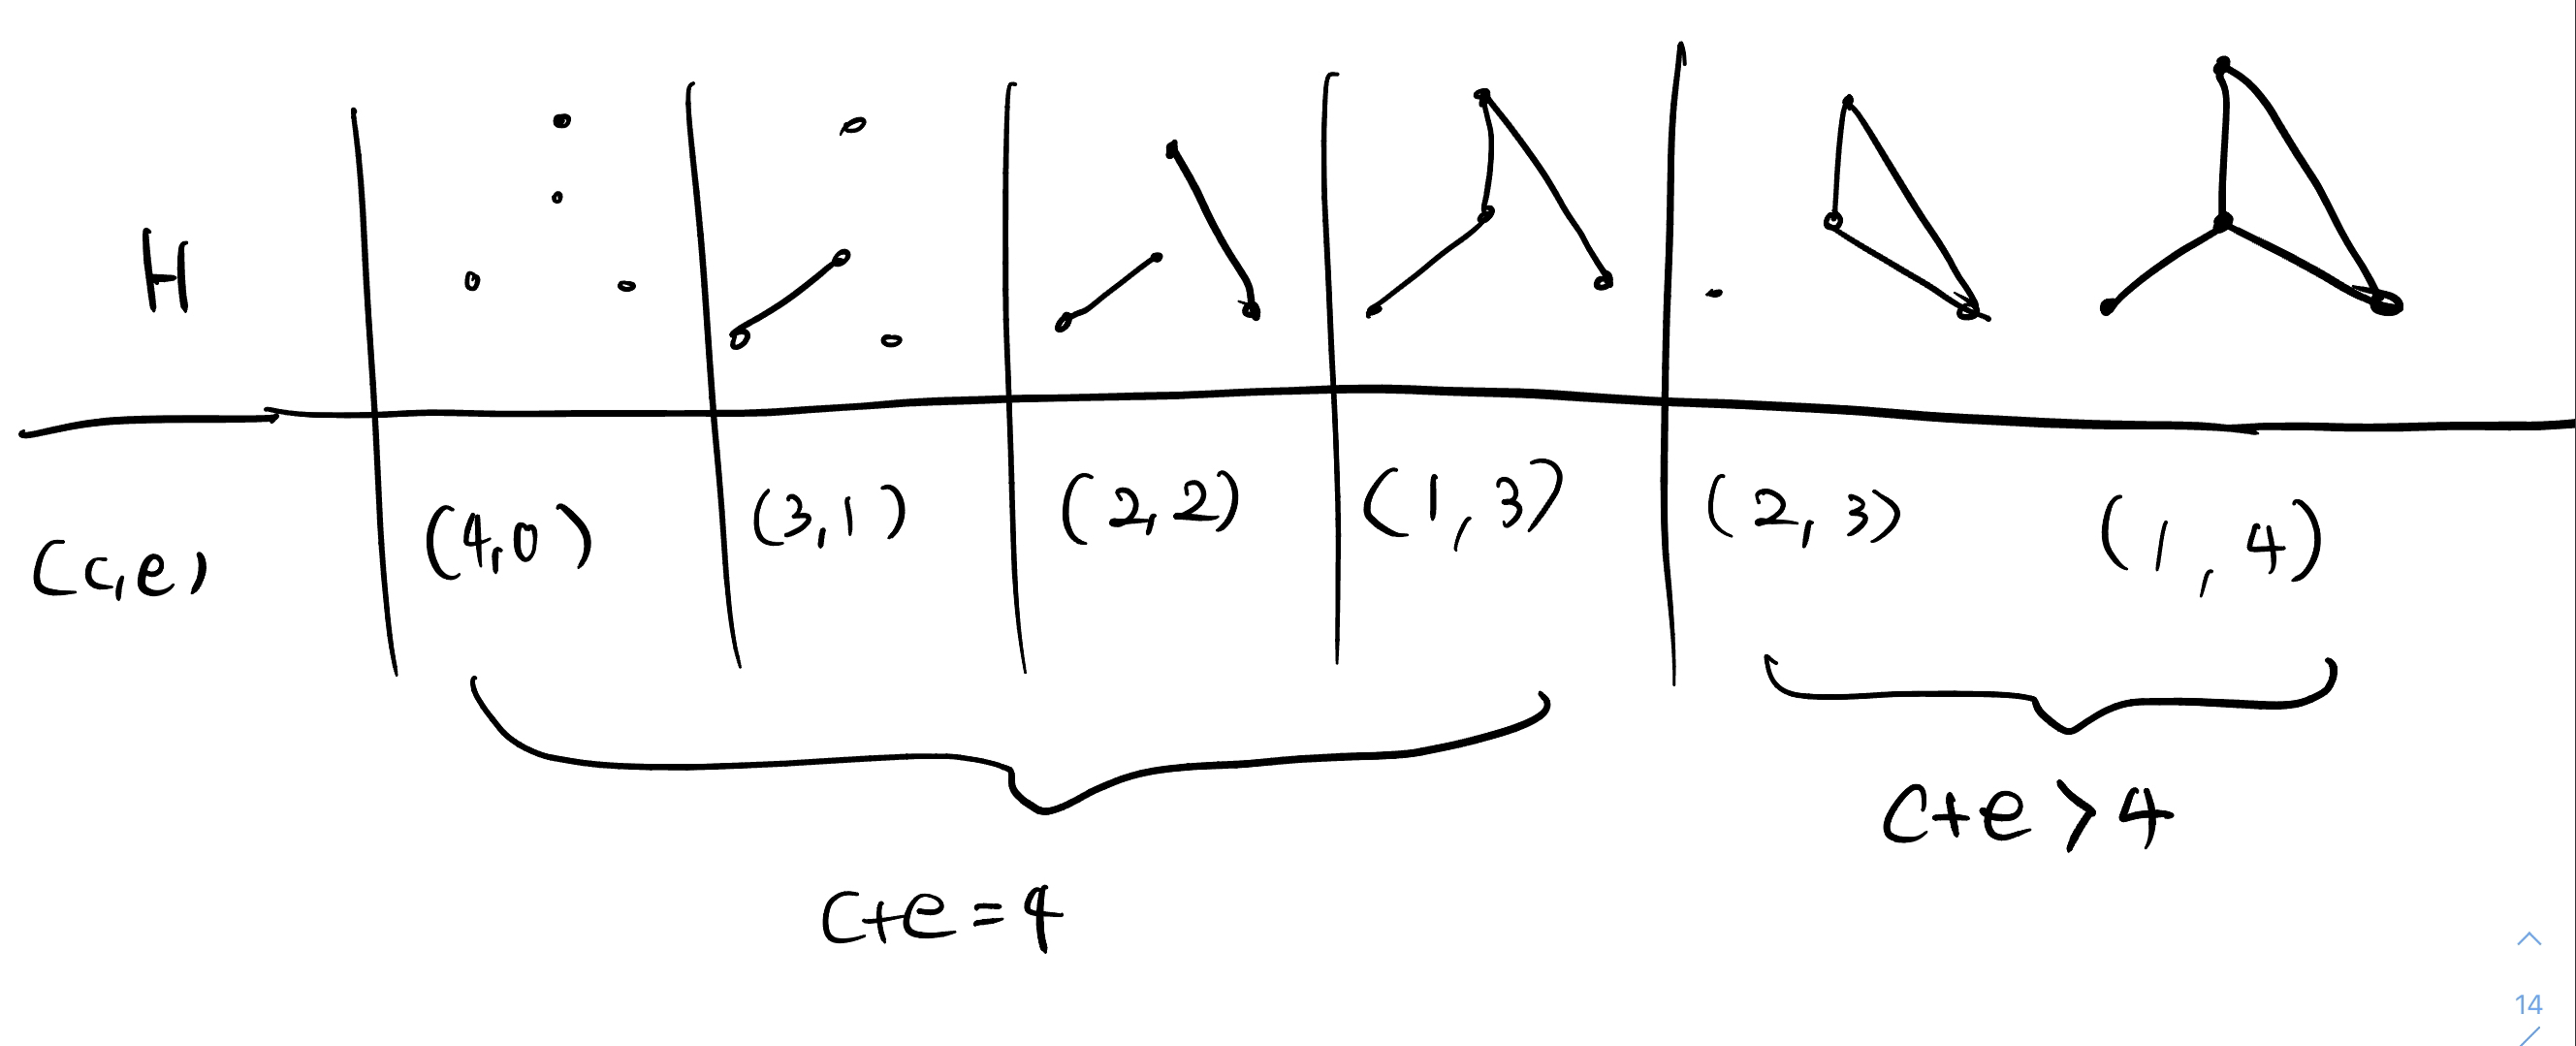 H
(c,e) (4,0) (3,1) (2,2) (1,3) (2,3) (1,4)
c+e>4
c+e=4
14